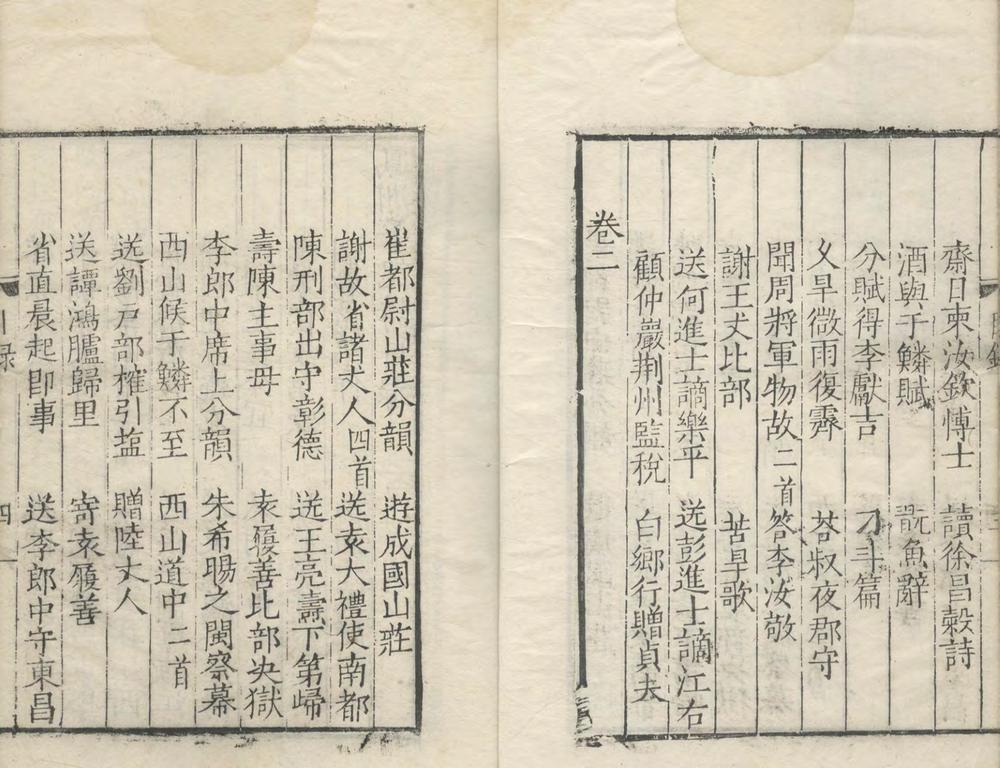 目錄
齋日柬汝欽博士 讀徐昌穀詩
酒與子鱗賦 翫魚辭
分賦得李獻吉 刁斗篇
久旱微雨復霽 荅叔夜郡守
聞周將軍物故二首 答李汝敬
謝王丈比部 苦旱歌
送何進士謫樂平 送彭進士謫江右
顧仲巖荆州監稅 白鄉行贈貞夫
卷二
崔都尉山莊分韻 遊成國山莊
謝故省諸丈人四首 送袁大禮使南都
陳刑部出守彰德 送王亮壽下第歸
壽陳主事母 袁履善比部决獄
李郎中席上分韻 朱希暘之閩察幕
西山候于鱗不至 西山道中二首
送劉戸部榷引塩 贈陸丈人
送譚鴻臚歸里 寄袁履善
省直晨起卽事 送李郎中守東昌
四